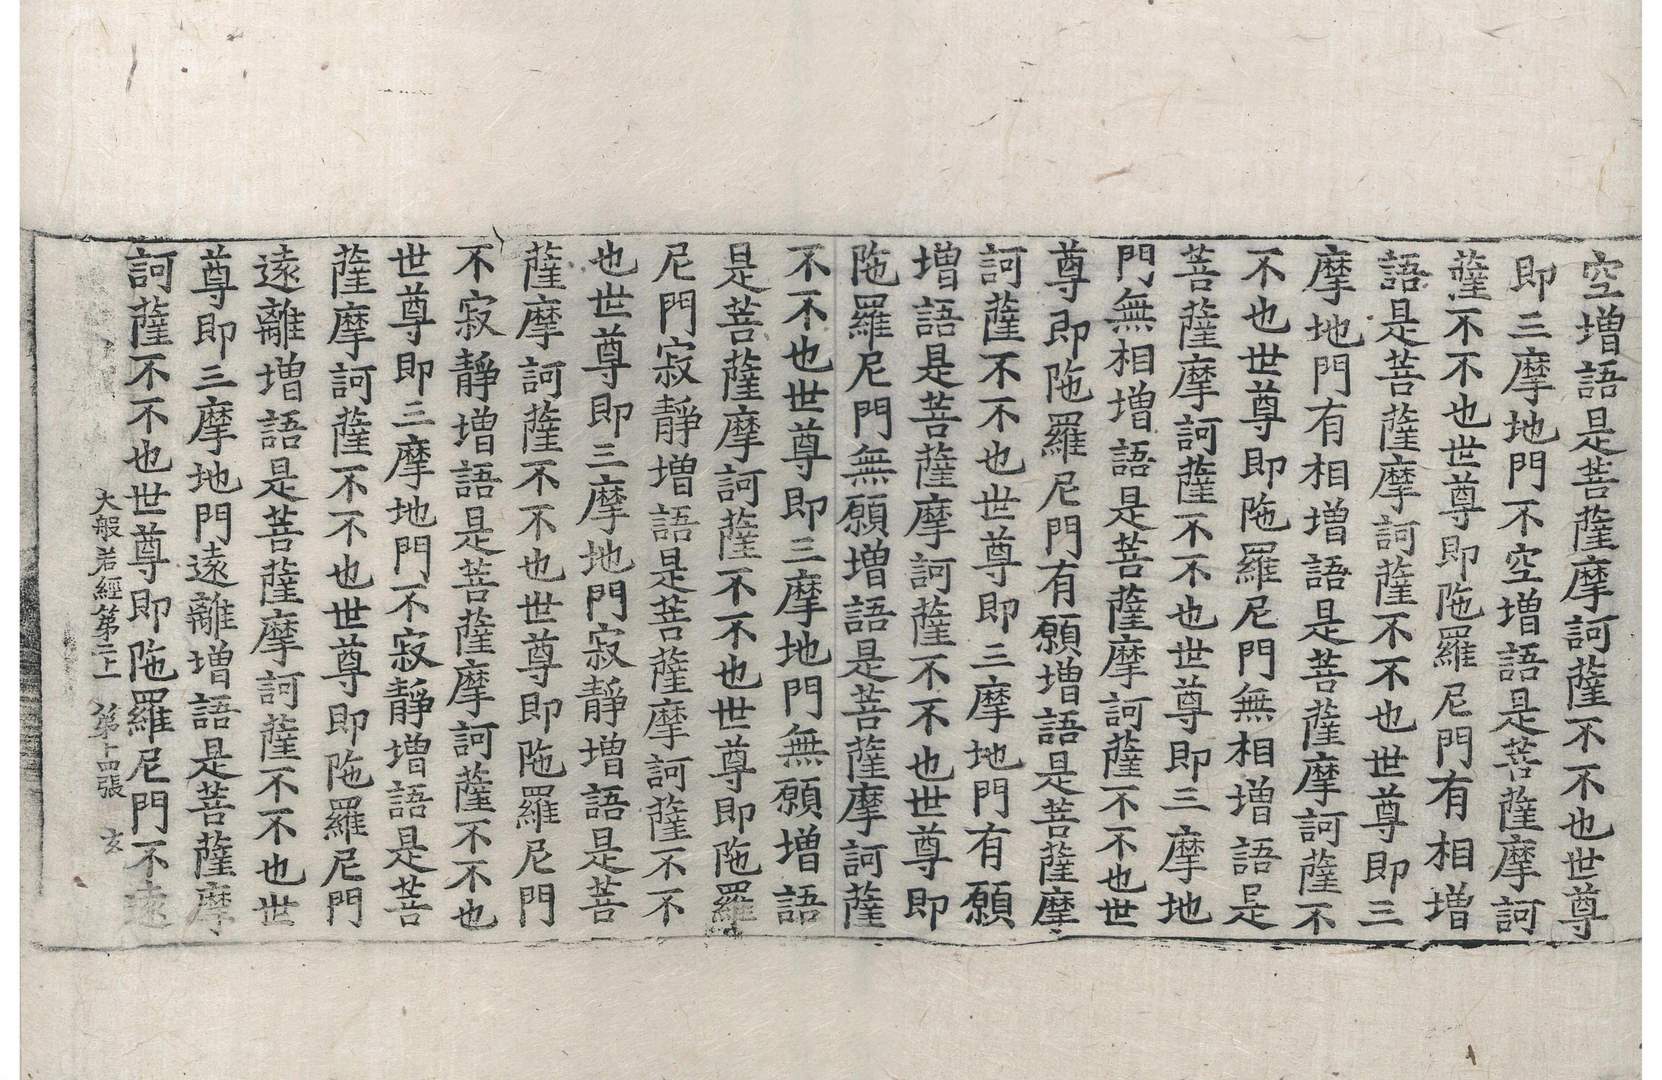 空增語是菩薩摩訶薩不不也世尊
即三摩地門不空增語是菩薩摩訶
薩不不也世尊即陁羅尼門有相增
語是菩薩摩訶薩不不也世尊即三
摩地門有相增語是菩薩摩訶薩不
不也世尊即陁羅尼門無相增語是
菩薩摩訶薩不不也世尊即三摩地
門無相增語是菩薩摩訶薩不不也世
尊即陁羅尼門有願增語是菩薩摩
訶薩不不也世尊即三摩地門有願
增語是菩薩摩訶薩不不也世尊即
陁羅尼門無願增語是菩薩摩訶薩
不不也世尊即三摩地門無願增語
是菩薩摩訶薩不不也世尊即陁羅
尼門寂靜增語是菩薩摩訶薩不不
也世尊即三摩地門寂靜增語是菩
薩摩訶薩不不也世尊即陁羅尼門
不寂靜增語是菩薩摩訶薩不不也
世尊即三摩地門不寂靜增語是菩
薩摩訶薩不不也世尊即陁羅尼門
遠離增語是菩薩摩訶薩不不也世
尊即三摩地門遠離增語是菩薩摩
訶薩不不也世尊即陁羅尼門不遠
大般若經第二十一 第十四張 玄